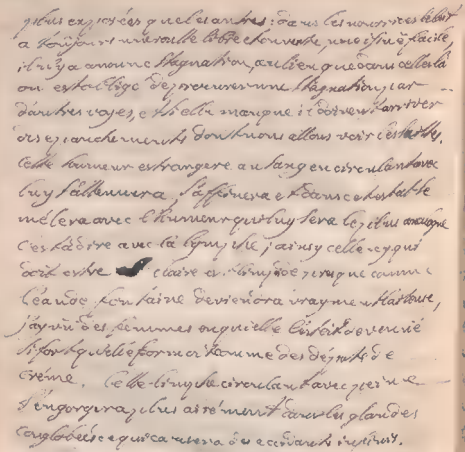 plus exposées que les autres: dans les nourrices le lait
a toûjours une route libre et ouverte, une issuë facile,
il n'y a aucune stagnation, au lieu que dans celles là
on est obligé de procurer une stagnation par
d'autres voyes, et si elle manque il doit arriver
des epanchements dont nous allons voir les suittes.
Cette humeur estrangere au sang en circulant avec
luy s'attenuera, s'affinera et dans cet estat se
mélera avec l'humeur qui luy sera le plus analogue
C'est à dire avec la lymphe, ainsy celle-cy qui
doit estre claire et limpide presque comme
l'eau de fontaine deviendra vrayment laiteuse,
j'ay vû des femmes ou qu'elle l'estoit devenuë
si fort qu'elle formoit comme des depots de
créme. Cette limphe circulant avec peine
s'engorgera plus aisément dans les glandes
conglobées ce qui causera des accidents infinis.